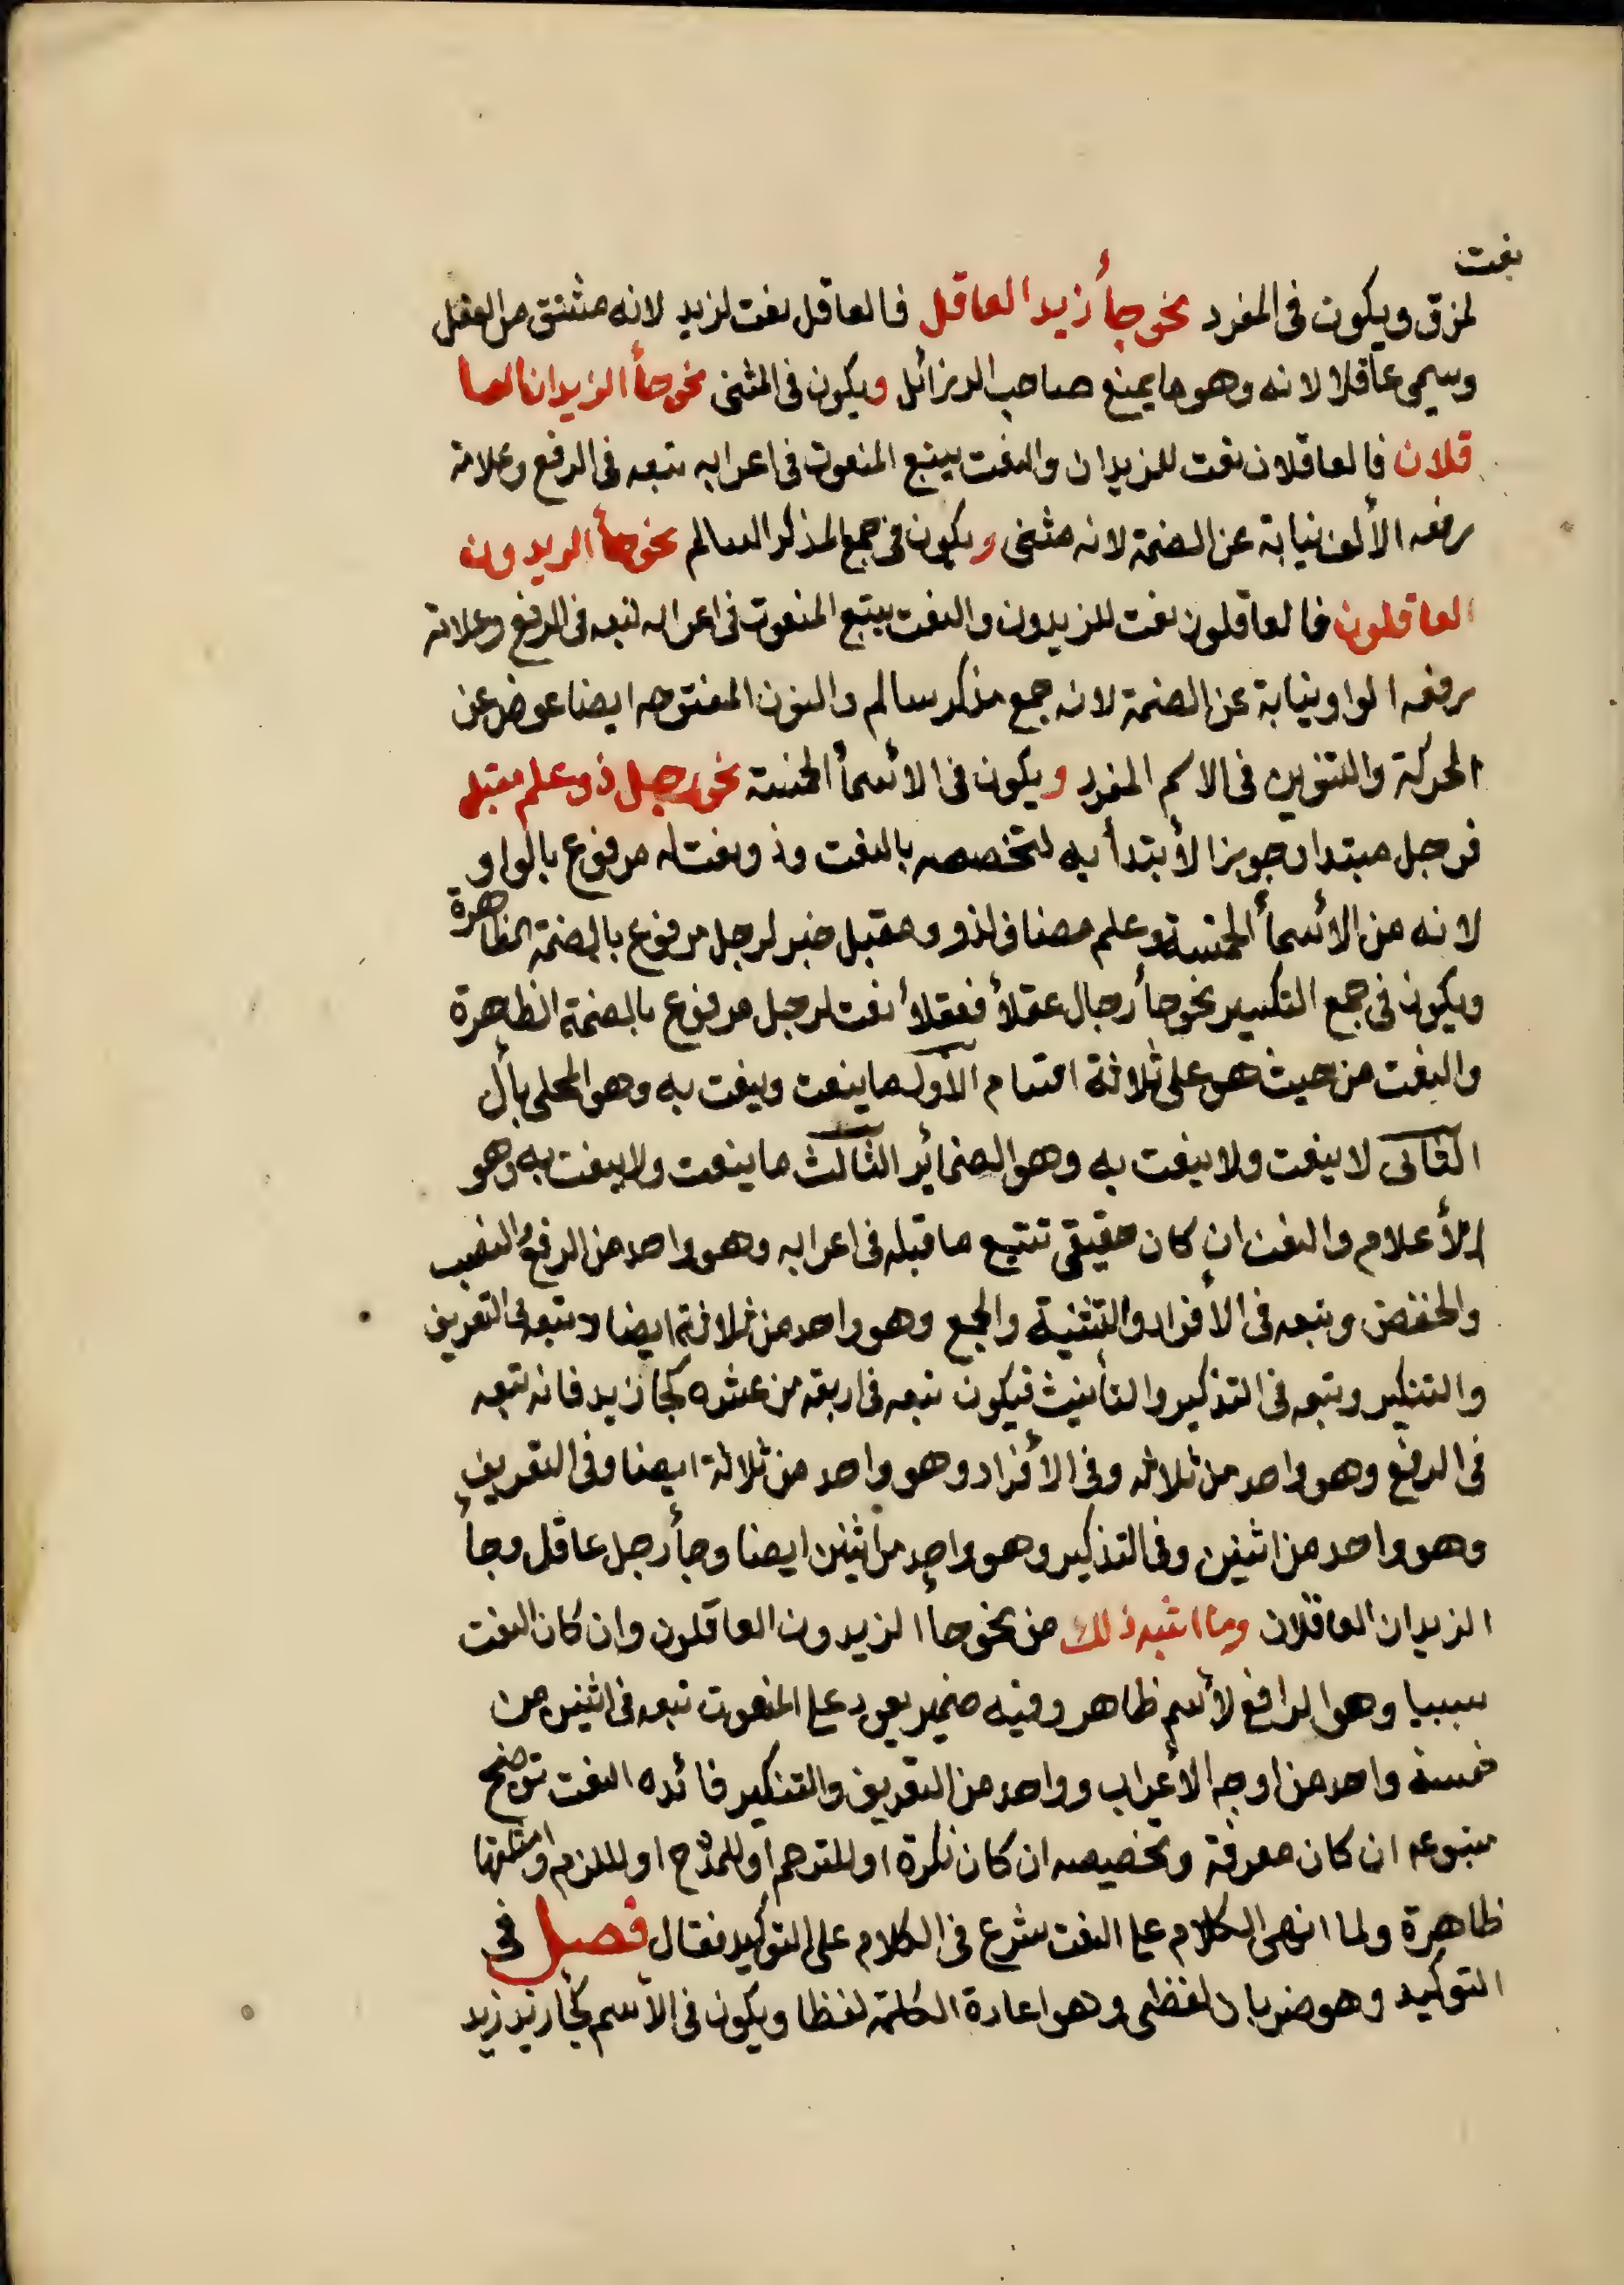 نعت
لمزق ويكون فى المفرد نحو جأ زيد العاقل فالعاقل نعت لزيد لانه مشتق من العقل
وسمى عاقلا لانه وهو ما يمنع صاحب الرزائل ويكون فى المثنى نحو جأ الزيدان العا
قلان فالعاقلان نعت للزيدان والنعت يتبع المنعوت فى اعرابه تبعه فى الرفع وعلامة
رفعه الألف نيابة عن الضمة لانه مثنى ويكون فى جمع المذكر السالم نحو جأ الزيدون
العاقلون فالعاقلون نعت للزيدون والنعت يتبع المنعوت فى اعرابه تبعه فى الرفع وعلامة
رفعه الواو نيابة عن الضمة لانه جمع مذكر سالم والنون المفتوحه ايضا عوض عن
الحركة والتنوين فى الاسم المفرد ويكون فى الأسمأ الخمسة نحو رجل ذو علم مقبل
فرجل مبتدا وجوز الأبتدأ به لتخصصه بالنعت وذو نعت له مرفوع بالواو
لانه من الأسمأ الخمسة وعلم مضاف لذو ومقبل خبر لرجل مرفوع بالضمة الظاهرة
ويكون فى جمع التكسير نحو جأ رجال عقلأ فعقلأ نعت لرجل مرفوع بالضمة الظاهرة
والنعت من حيث هو على ثلاثة اقسام الأول ما ينعت وينعت به وهو المحلى بأل
الثانى لا ينعت ولا ينعت به وهو الضمائر الثالث ما ينعت ولا ينعت به وهو
الأعلام والنعت ان كان حقيقى تتبع ما قبله فى اعرابه وهو واحد من الرفع والنصب
والخفض وتبعه فى الأفراد والتثنية والجمع وهو واحد من ثلاثة ايضا وتبعه فى التعريف
والتنكير وتبعه فى التذكير والتأنيث فيكون تبعه فى اربعة من عشره كجا زيد فانه تبعه
فى الرفع وهو واحد من ثلاثه وفى الأفراد وهو واحد من ثلاثة ايضا وفى التعريف
وهو واحد من اثنين وفى التذكير وهو واحد من اثنين ايضا وجأ رجل عاقل وجأ
الزيدان العاقلان وما اشبه ذلك من نحو جأ الزيدون العاقلون وان كان النعت
سببيا وهو الرافع لأسم ظاهر وفيه ضمير يعود على المنعوت تبعه فى اثنين من
خمسة واحد من اوجه الأعراب وواحد من التعريف والتنكير فائده النعت توضح
متبوعه ان كان معرفة وتخصيصه ان كان نكرة او للترحم او للمدح او للذم وامثلتها
ظاهرة ولما انهى الكلام على النعت شرع فى الكلام على التوكيد فقال فصل فى
التوكيد وهو ضربان لفظى وهو اعادة الكلمة لفظا ويكون فى الأسم كجا زيد زيد